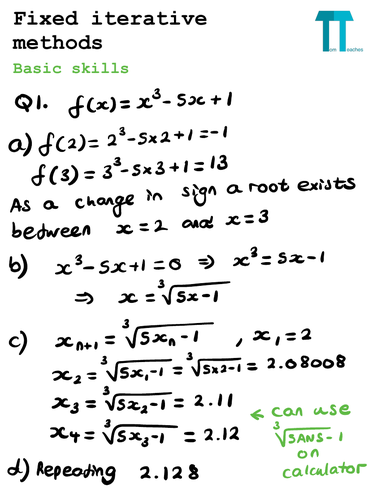 Fixed iterative
methods
Tom Teaches
Basic skills
Q1. f(x) = x³ - 5x + 1
a) f(2) = 2³ - 5x2 + 1 = -1
f(3) = 3³ - 5x3 + 1 = 13
As a change in sign a root exists
between x = 2 and x = 3
b) x³ - 5x + 1 = 0 ⇒ x³ = 5x - 1
⇒ x = ∛(5x - 1)
c) xₙ₊₁ = ∛(5xₙ - 1) , x₁ = 2
x₂ = ∛(5x₁ - 1) = ∛(5x2 - 1) = 2.08008
x₃ = ∛(5x₂ - 1) = 2.11
x₄ = ∛(5x₃ - 1) = 2.12
← can use
∛(5ANS - 1)
on
calculator
d) Repeating 2.128